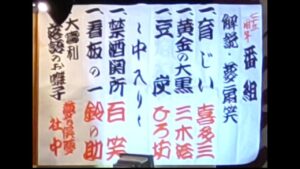 番組
解説・葵扇笑
一、育じい 喜多三
一、黄金の大黒 三木落
一、豆炭 ひろ坊
〜中入り〜
一、禁酒関所 百笑
一、看板の一 鈴の助
大喜利
落語のお囃子 社中